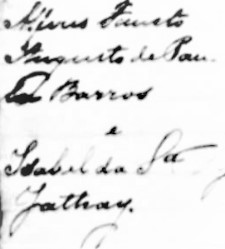 Fausto
Augusto de Pau
la Barros
e
Isabel da Sa
Jathay.